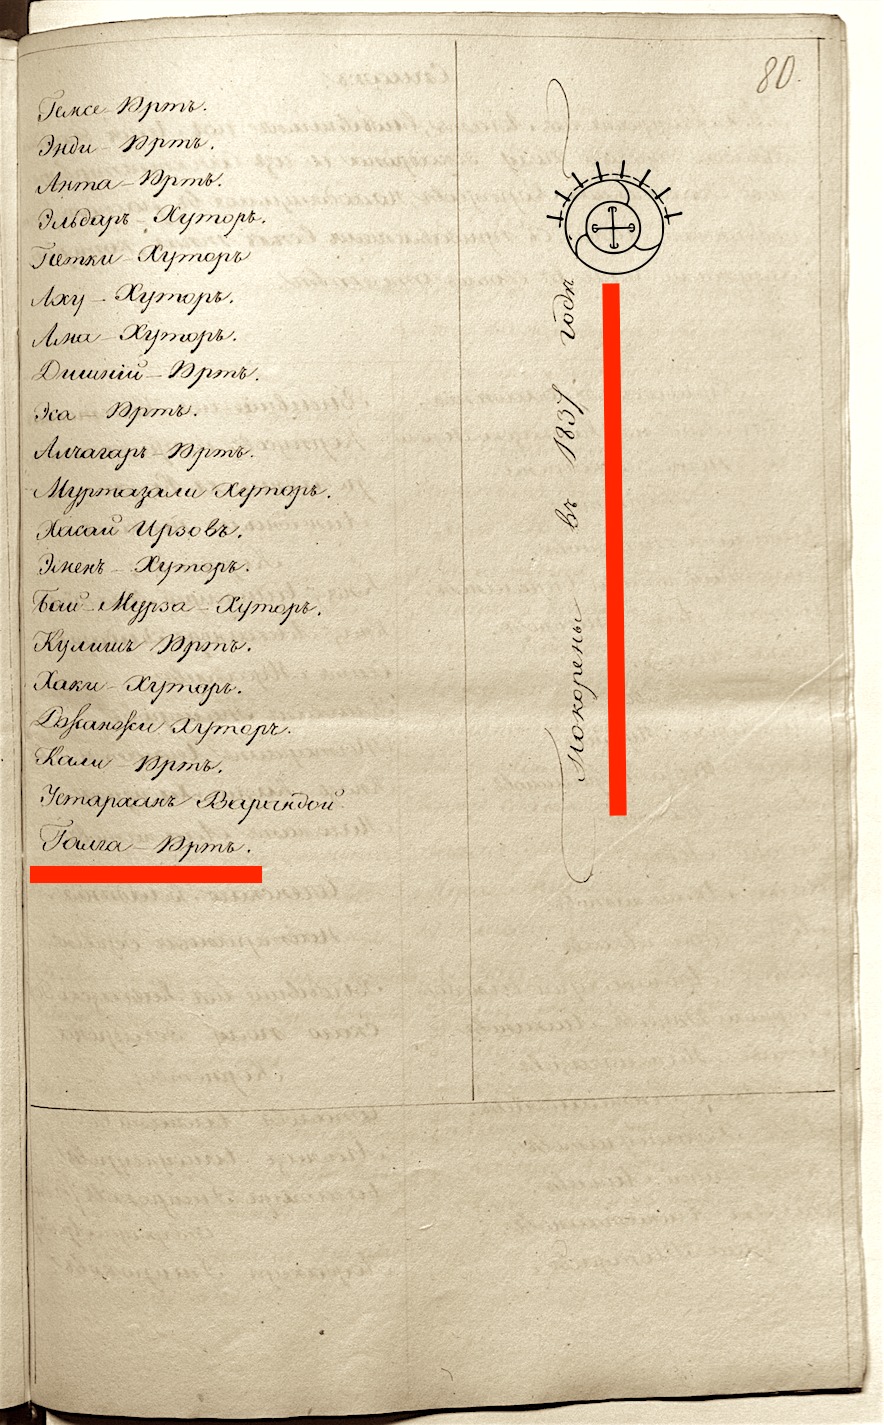 80.
Гемсе-Юртъ.
Энди-Юртъ.
Анта-Юртъ.
Эльдаръ-Хуторъ.
Петки-Хуторъ
Аху-Хуторъ.
Ама-Хуторъ.
Дишній-Юртъ.
Эса-Юртъ.
Алчагаръ Юртъ.
Муртазали Хуторъ.
Хасай Ирзовъ.
Эменъ-Хуторъ.
Бай-Мурза-Хуторъ.
Кулишъ Юртъ.
Хаки-Хуторъ.
Джанжи Хуторъ.
Кали Юртъ.
Устарханъ Варандой
Галга-Юртъ.
Покорены въ 1837. годѣ